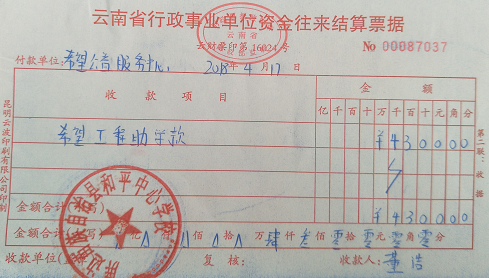 云南省行政事业单位资金往来结算票据
云南省
云财票印第16024号
No 00087037
付款单位:希望公益服务中心 2018年4月17日
收款项目 金额
亿千百十万千百十元角分
希望工程助学款 ¥430000
¥430000
金额合计(
金额合计( 写) 亿 佰拾 万肆仟叁佰零拾零元零角零分
收款单位( 复核: 收款人:董浩
昆明云波印刷有限公司印制
第二联:收据
族自治县和平中心学校